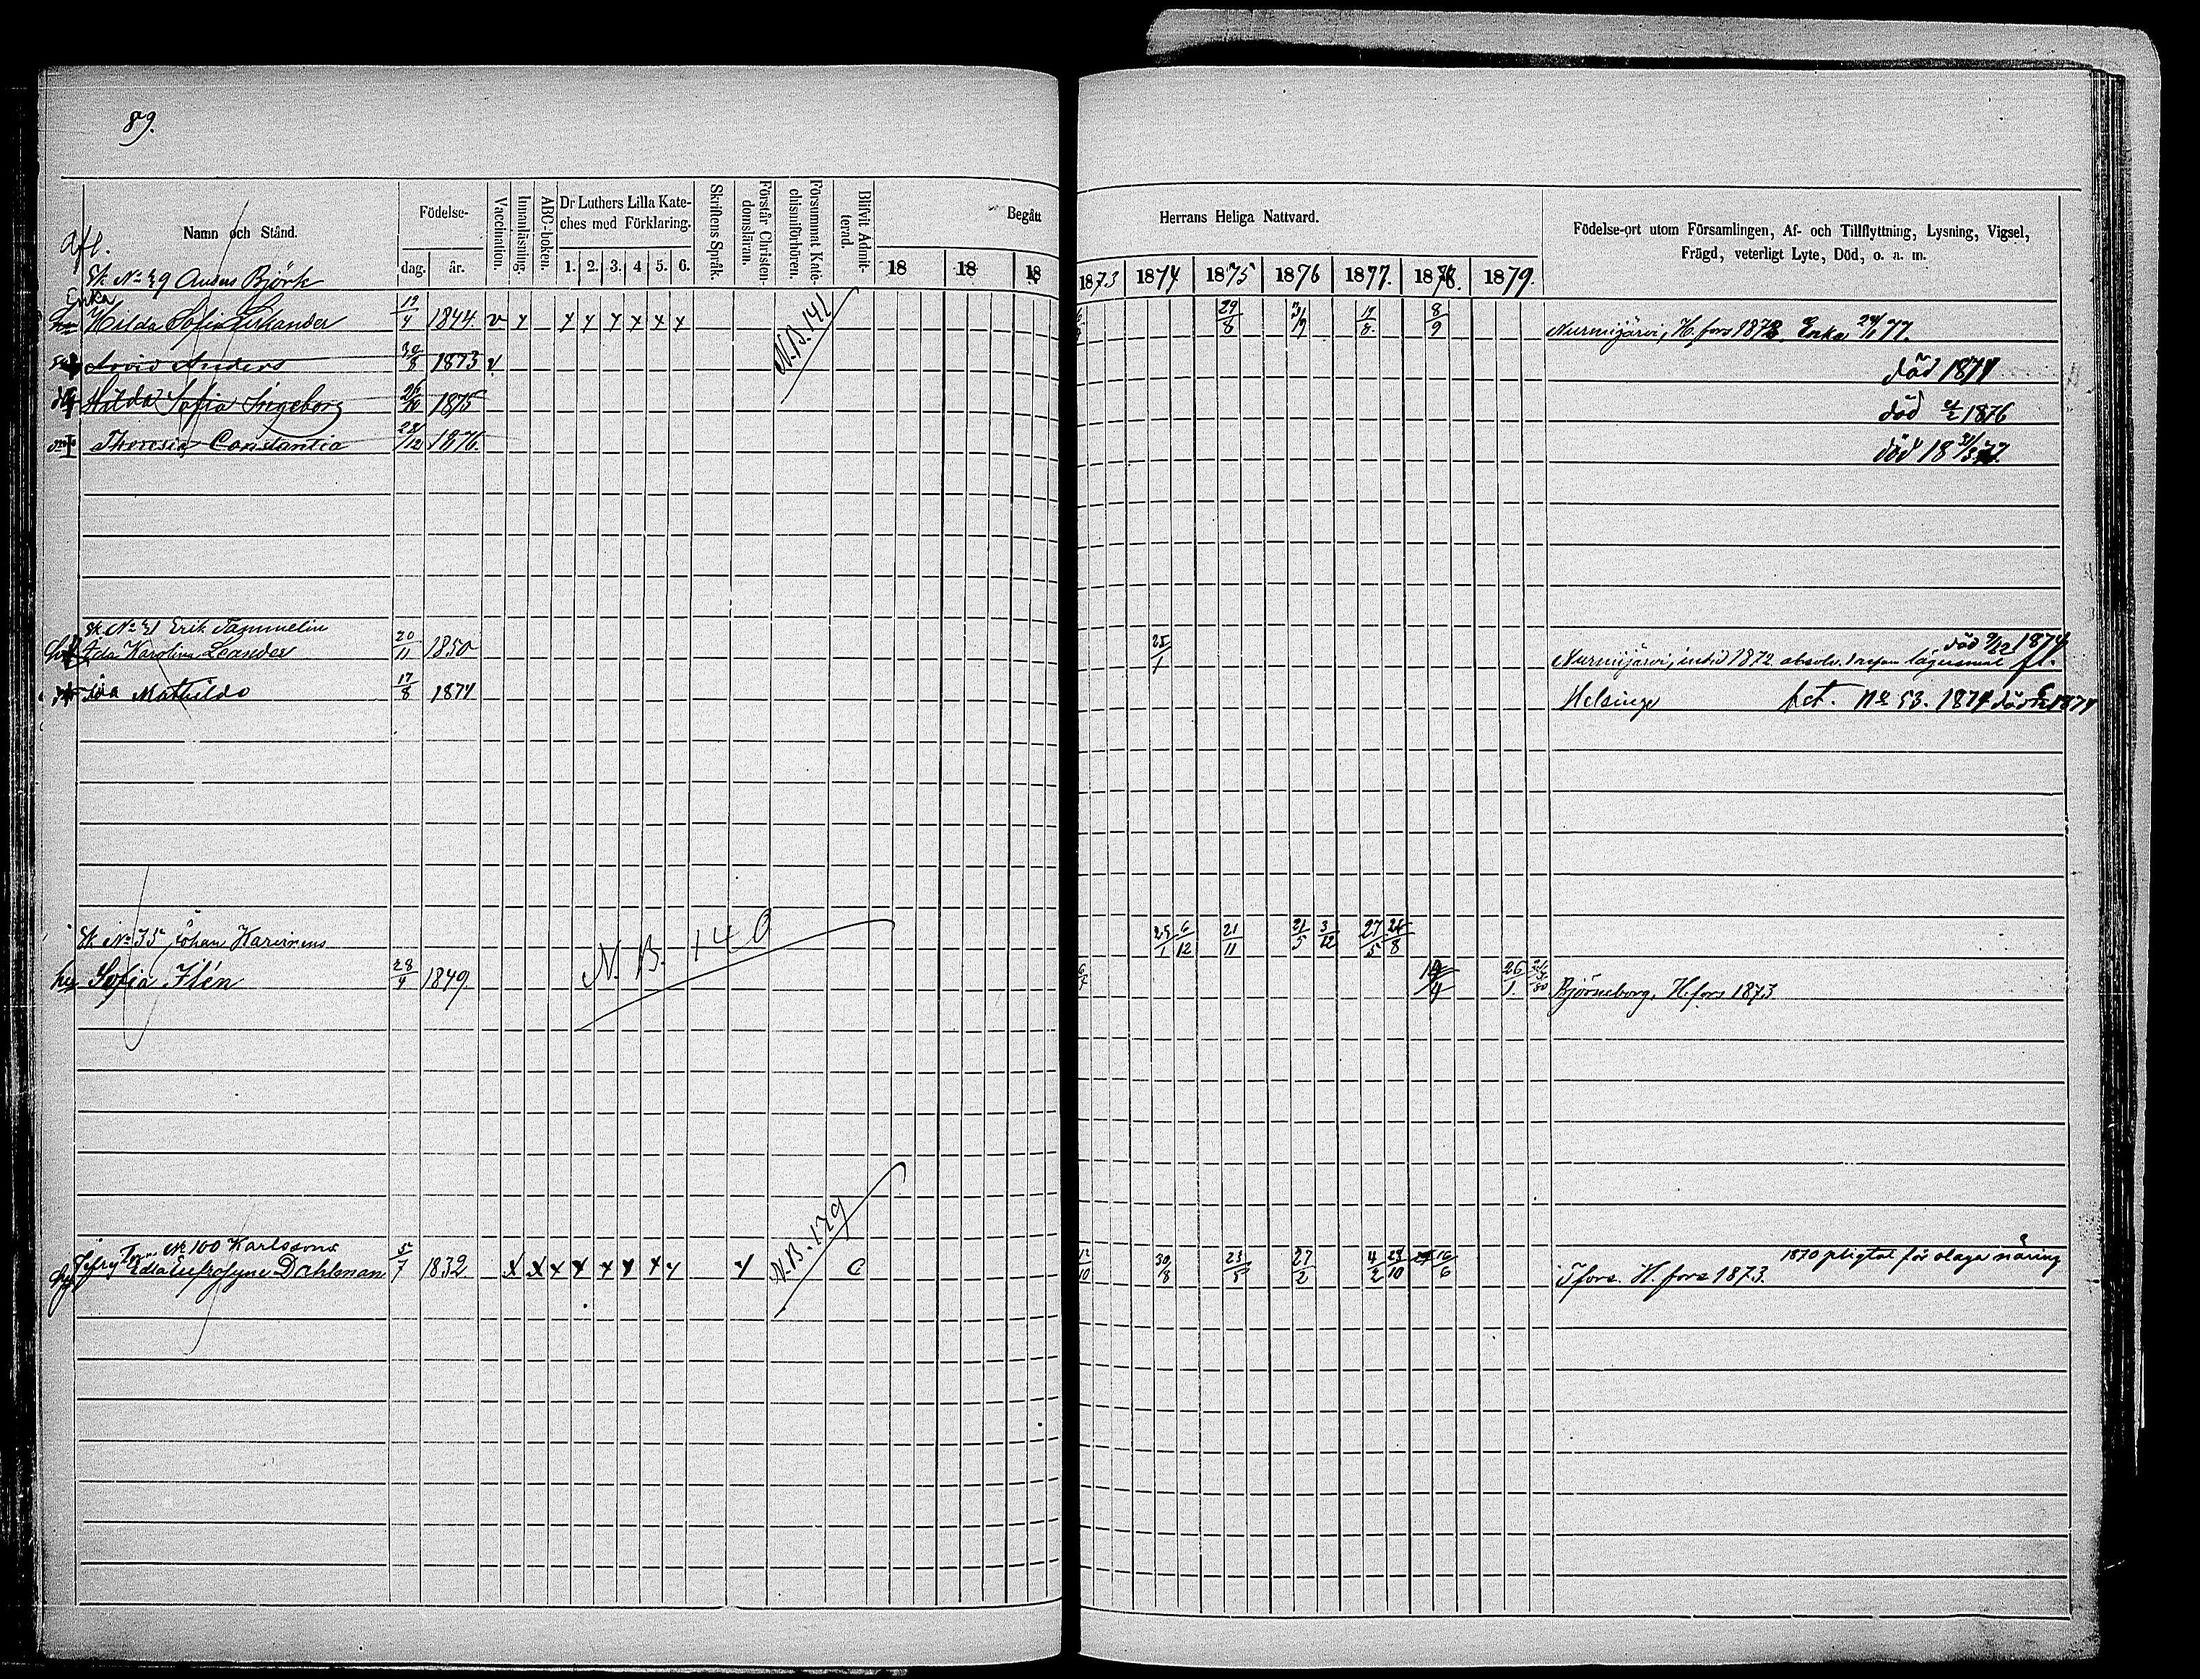 89.
Namn och Stånd.
Födelse-
dag. år.
Vaccination.
Innanläsning.
ABC-boken.
Dr Luthers Lilla Kate-
ches med Förklaring.
1. 2. 3. 4 5. 6.
Skriftens Språk.
Förstår Christen-
domsläran.
Försummat Kate-
chismiförhören.
Blifvit Admit-
terad.
Begått
18 18 18
Herrans Heliga Nattvard.
1873 1874 1875 1876 1877. 1878. 1879.
Födelse-ort utom Församlingen, Af- och Tillflyttning, Lysning, Vigsel,
Frägd, veterligt Lyte, Död, o. a. m.
Afl.
Sk. No 29 Anders Björk
Enka
Hilda Sofia 19/4 1844. v x x x x x x x N.B. 142 29/8 3/9 19/8. 8/9 Nurmijärvi, H.fors 1873. Enka 77.
Arvid Anders 30/8 1873 v död 1874
Hilda Sofia Ingeborg 26/10 1875 död 4/2 1876
Theresia Constantia 28/12 1876. död 18 31/3 77.
Sk. No 21 Erik Tammelin
Ida Karolina Leander 20/11 1850 25/1 död 9/12 1874
Nurmijärvi, 1872 absolv. lägersmål
Ida Mathilda 17/8 1874 Helsinge bet. No 53. 1874 död 1874
Sk No 35 Johan Karimens 25/1 6/12 21/11 21/5 3/12 27/5 26/8
hu Sofia Flén 28/4 1849. N.B. 140 6/4 14/4 26/1. Björneborg, H.fors 1873
No 100 Karlssons
Edla Eufrosyne Dahlman 5/7 1832 x x x x x x x x x N.B. 139 C 12/10 30/8 23/5 27/2 4/2 28/10 16/6 1870 pligtat för olaga näring
Tfors. H.fors 1873.